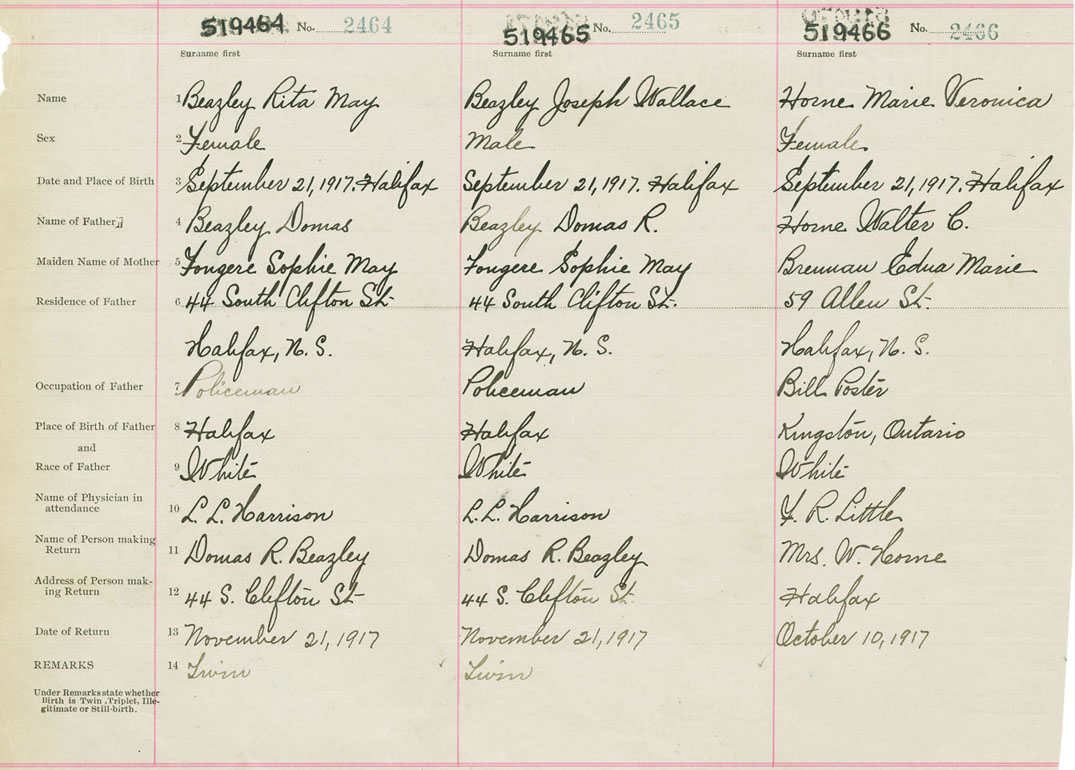 519464 No. 2464 519465 No. 2465 519466 No. 2466
Surname first Surname first Surname first
Name 1 Beazley Rita May Beazley Joseph Wallace Horne Marie Veronica
Sex 2 Female Male Female
Date and Place of Birth 3 September 21, 1917. Halifax September 21, 1917. Halifax September 21, 1917. Halifax
Name of Father 4 Beazley Domas Beazley Domas R. Horne Walter C.
Maiden Name of Mother 5 Fougere Sophie May Fougere Sophie May Brennan Edna Marie
Residence of Father 6 44 South Clifton St. 44 South Clifton St. 59 Allen St.
Halifax, N. S. Halifax, N. S. Halifax, N. S.
Occupation of Father 7 Policeman Policeman Bill Poster
Place of Birth of Father 8 Halifax Halifax Kingston, Ontario
and
Race of Father 9 White White White
Name of Physician in
attendance 10 L. L. Harrison L. L. Harrison F. R. Little
Name of Person making
Return 11 Domas R. Beazley Domas R. Beazley Mrs. W. Horne
Address of Person mak-
ing Return 12 44 S. Clifton St. 44 S. Clifton St. Halifax
Date of Return 13 November 21, 1917 November 21, 1917 October 10, 1917
REMARKS 14 Twin Twin
Under Remarks state whether
Birth is Twin, Triplet, Ille-
gitimate or Still-birth.